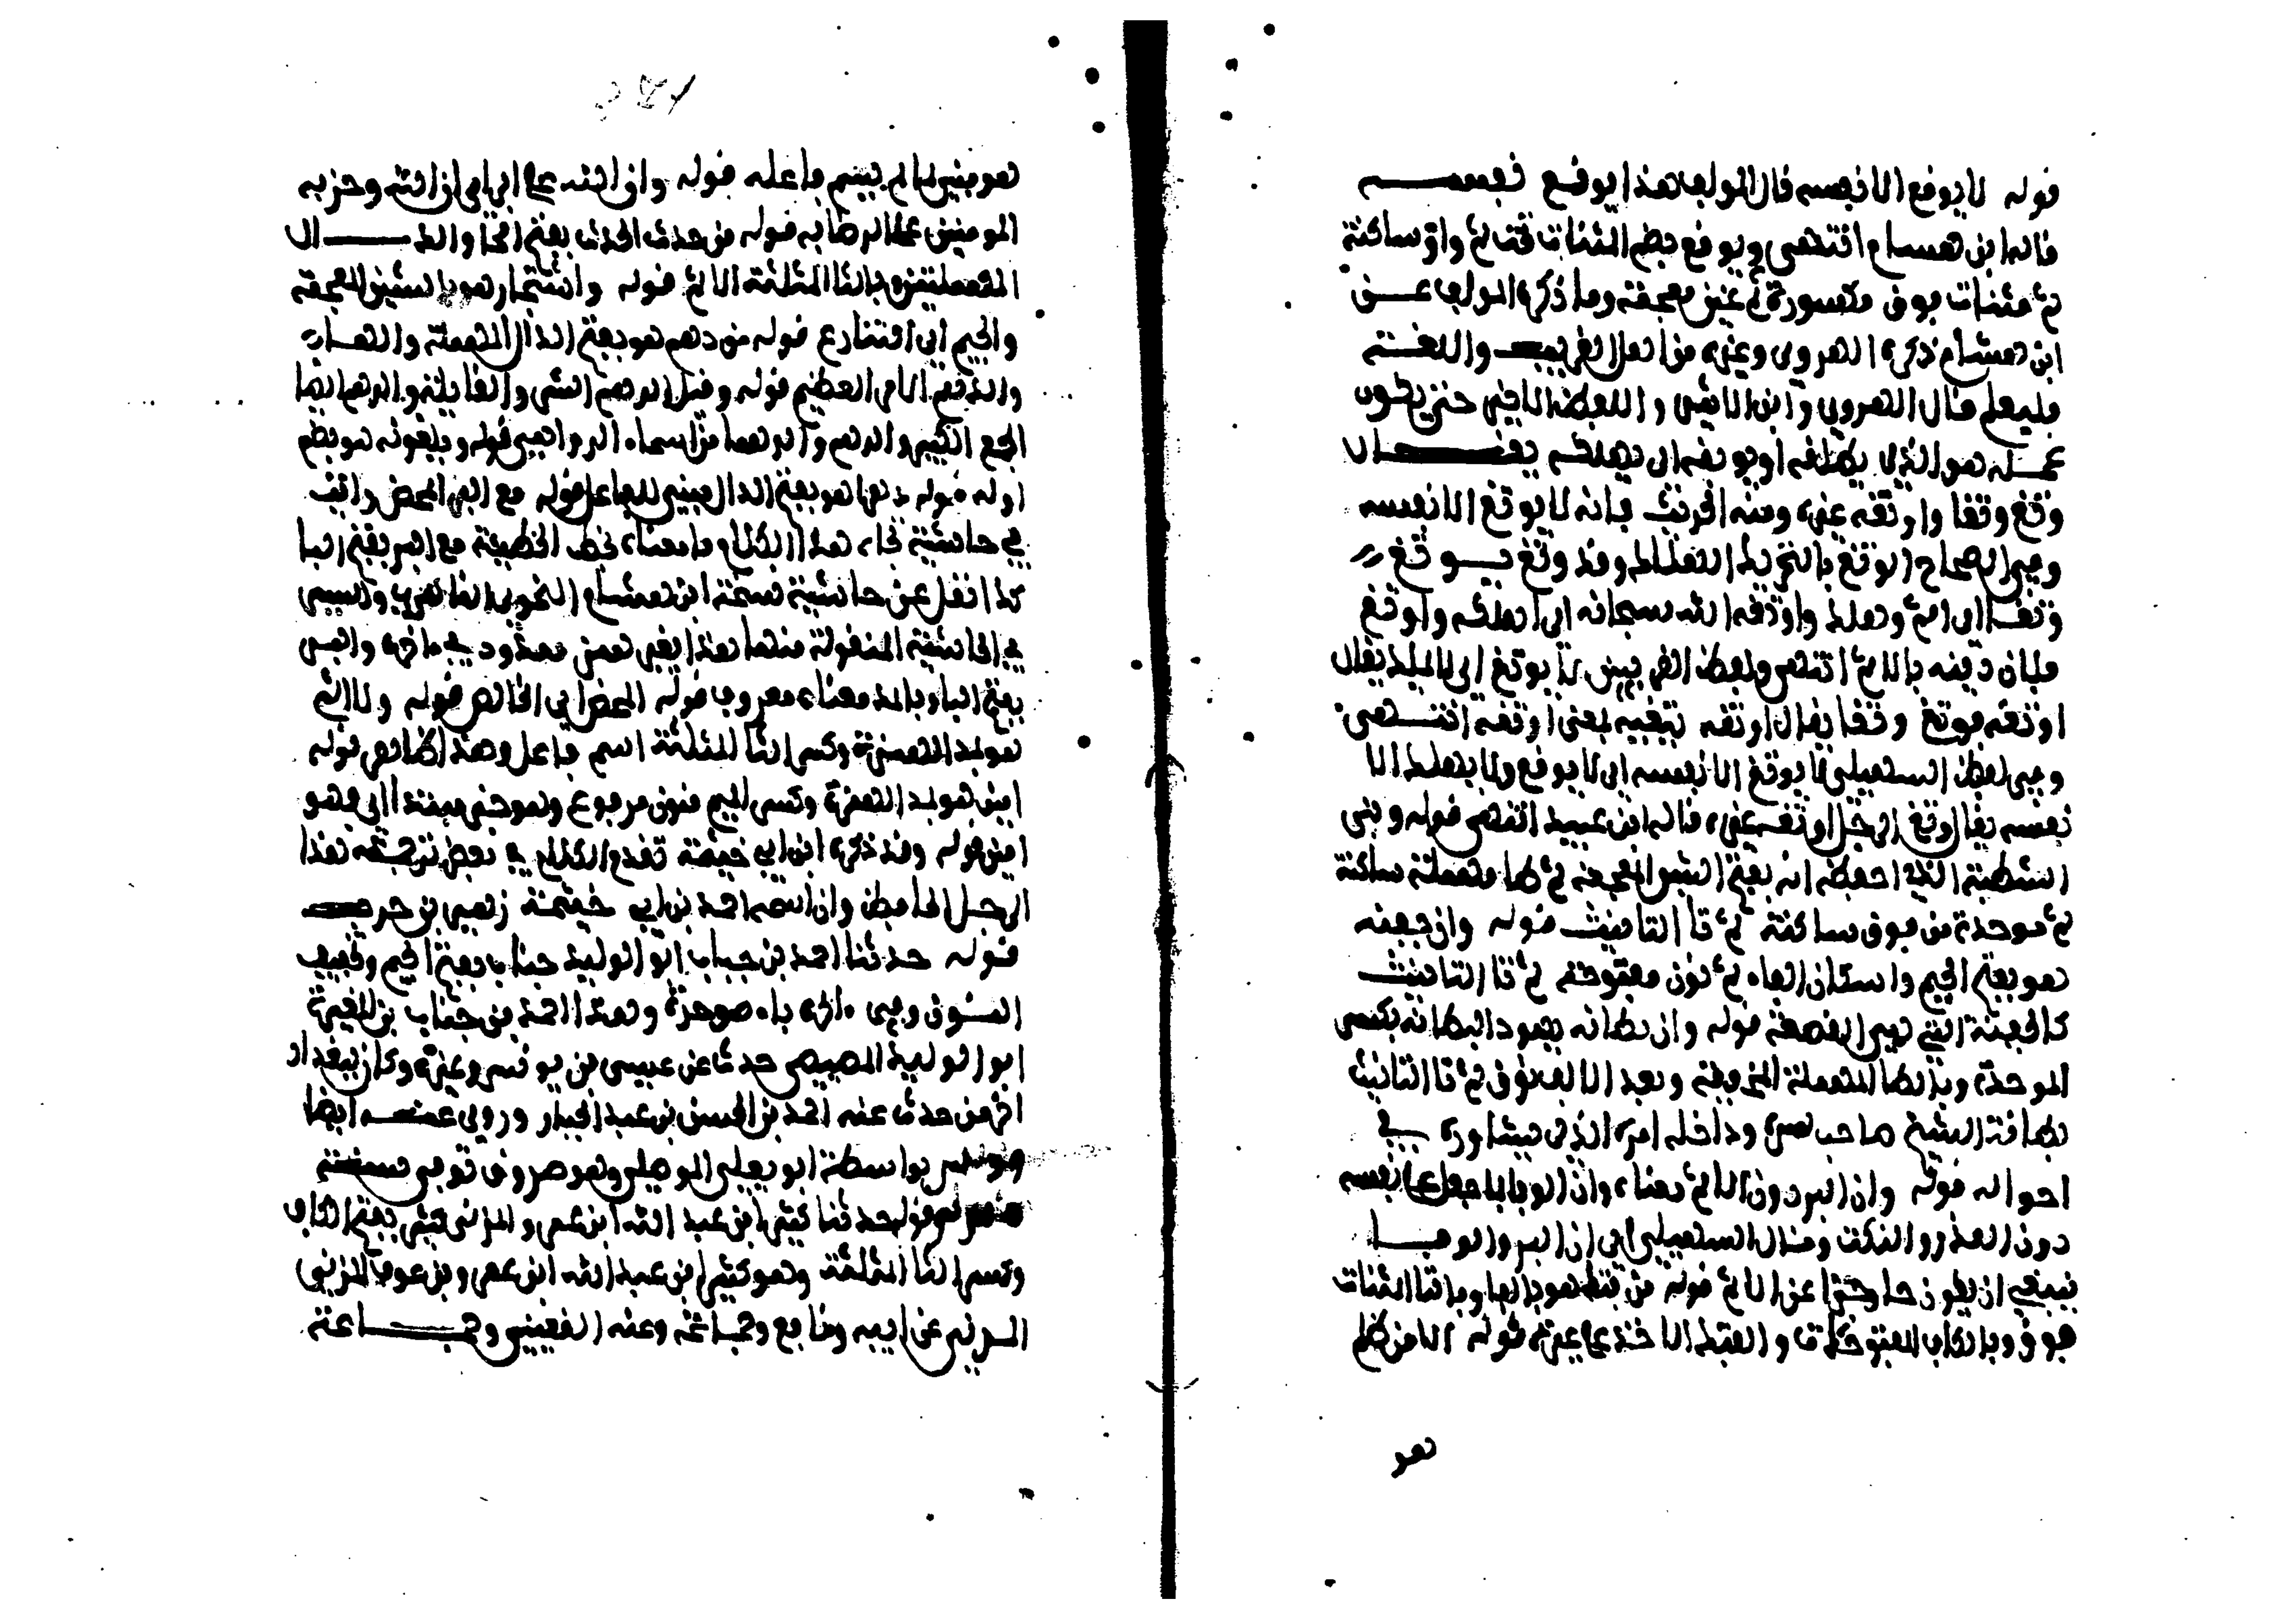 قوله لا يوقع الا نفسه قال المولف هذا يوقع نفسه
قاله ابن هشام انتهى ويوقع بضم المثناة تحت ثم واو ساكنة
ثم مثناة فوق مكسورة ثم غين معجمة وما ذكره المولف عن
ابن هشام ذكره الهروي وغيره من اهل الغريب واللغة
فليعلم قال الهروي وابن الاثير واللفظ للاخير حتى يكون
عمله هو الذي يطلقه او يوتغه اي يهلكه يقال
وتغ وتغا واوتغه غيره ومنه الحديث فانه لا يوتغ الا نفسه
وفي الصحاح الوتغ بالتحريك الهلاك وقد وتغ يوتغ
وتغا اي اثم وهلك واوتغه الله سبحانه اي اهلكه واوتغ
فلان دينه بالاثم انتهى ولفظ الغريبين لا يوتغ اي لا يهلك يقال
اوتغه فوتغ وتغا يقال اوتغه بمعنى اوتغه انتهى
وفي لفظ السهيلي لا يوتغ الا نفسه اي لا يوقع ولا يهلك الا
نفسه يقال وتغ الرجل اوتغه غيره قاله ابن عبيد انتهى قوله وبني
الشطبة الذي احفظه انه بفتح الشين المعجمة ثم طا مهملة ساكنة
ثم موحدة من فوق ساكنة ثم تا التانيث قوله وان جفنة
هو بفتح الجيم واسكان الفاء ثم نون مفتوحة ثم تا التانيث
كالجفنة التي هي القصعة قوله وان بطانة يهود البطانة بكسر
الموحدة وبالطا المهملة المخففة وبعد الالف نون ثم تا التانيث
بطانة الشيخ صاحب سره وداخله امره الذي يشاوره في
احواله قوله وان البر دون الاثم معناه وان الوفا لما جعل على نفسه
دون الغدر والنكث وقال السهيلي اي ان البر والوفا
ينبغي ان يكون حاجزا عن الاثم قوله من فتك هو بالفا وبالتا المثناة
فوق وبالكاف المفتوحات والفتك الاخذ على غرة قوله الا من ظلم
هو
هو مبني لما لم يسم فاعله قوله وان الله على ابر اي ان الله وحزبه
المومنين على الرضا به قوله من حدث الحدث بفتح الحا والدال
المهملتين وبالثا المثلثة الاثم قوله واشتجار هو بالشين المعجمة
والجيم اي التنازع قوله من دهم هو بفتح الدال المهملة والهاء
الجمع الكثير والدهم والدهيما من اسماء الدواهي قوله ويلبسونه هو بضم
اوله قوله دهم هو بفتح الدال مبني للفاعل قوله مع البر المحض رايت
في حاشية تجاه هذا الكلام ما معناه بخط الخطيئة مع البر بفتح البا
كذا نقل عن حاشية نسخة ابن هشام النحوي
في الحاشية المنقولة منها
بفتح البا وبالمد معناه معروف قوله المحض اي الخالص قوله ولا اثم
هو بمد الهمزة وكسر الثا المثلثة اسم فاعل وهذا ظاهر قوله
امن هو بمد الهمزة وكسر الميم منون مرفوع وهو خبر مبتدا اي فهو
امن قوله وقد ذكره ابن ابي خيثمة تقدم الكلام في بعض ترجمة هذا
الرجل الحافظ وان اسمه احمد بن ابي خيثمة زهير بن حرب
قوله حدثنا احمد بن جناب ابو الوليد جناب بفتح الجيم وتخفيف
النون وفي اخره باء موحدة وهذا احمد بن جناب بن المغيرة
ابو الوليد المصيصي حدث عن عيسى بن يونس وغيره وكان ببغداد
اخر من حدث عنه احمد بن الحسن بن عبد الجبار وروى عنه ايضا
بواسطة ابو يعلى الموصلي وهو صدوق توفي سنة
قوله حدثنا كثير ابن عبد الله ابن عمرو المزني كثير بفتح الكاف
وكسر الثا المثلثة وهو كثير ابن عبد الله ابن عمرو بن عوف المزني
المدني عن ابيه ونافع وجماعة وعنه القعنبي وجماعة